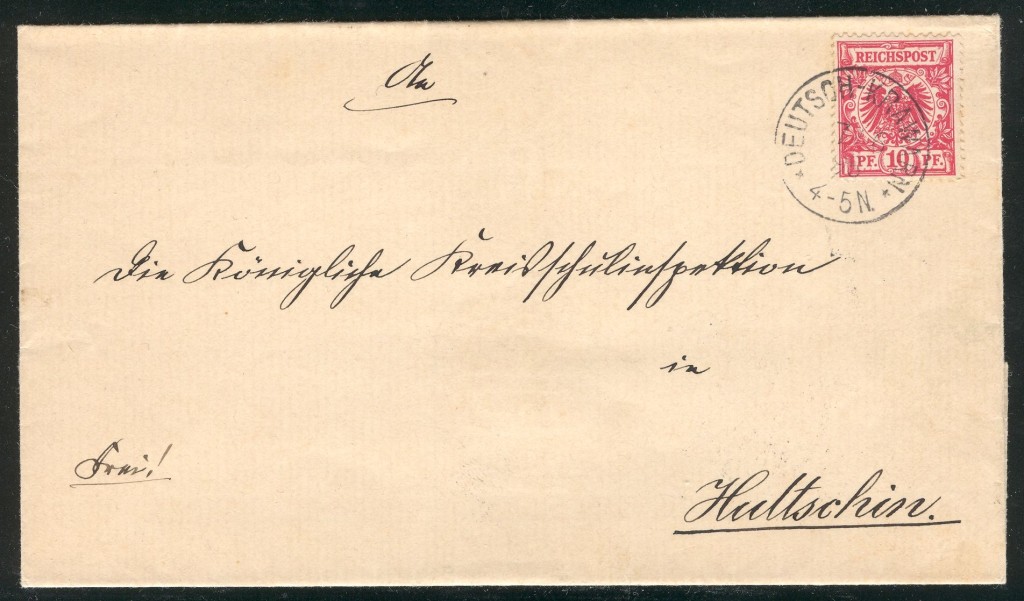 An
REICHSPOST
PF. 10 PF.
* DEUTSCH-KRAWARN *
4-5N.
Die Königliche Kreisschulinspektion
in
Frei!
Hultschin.